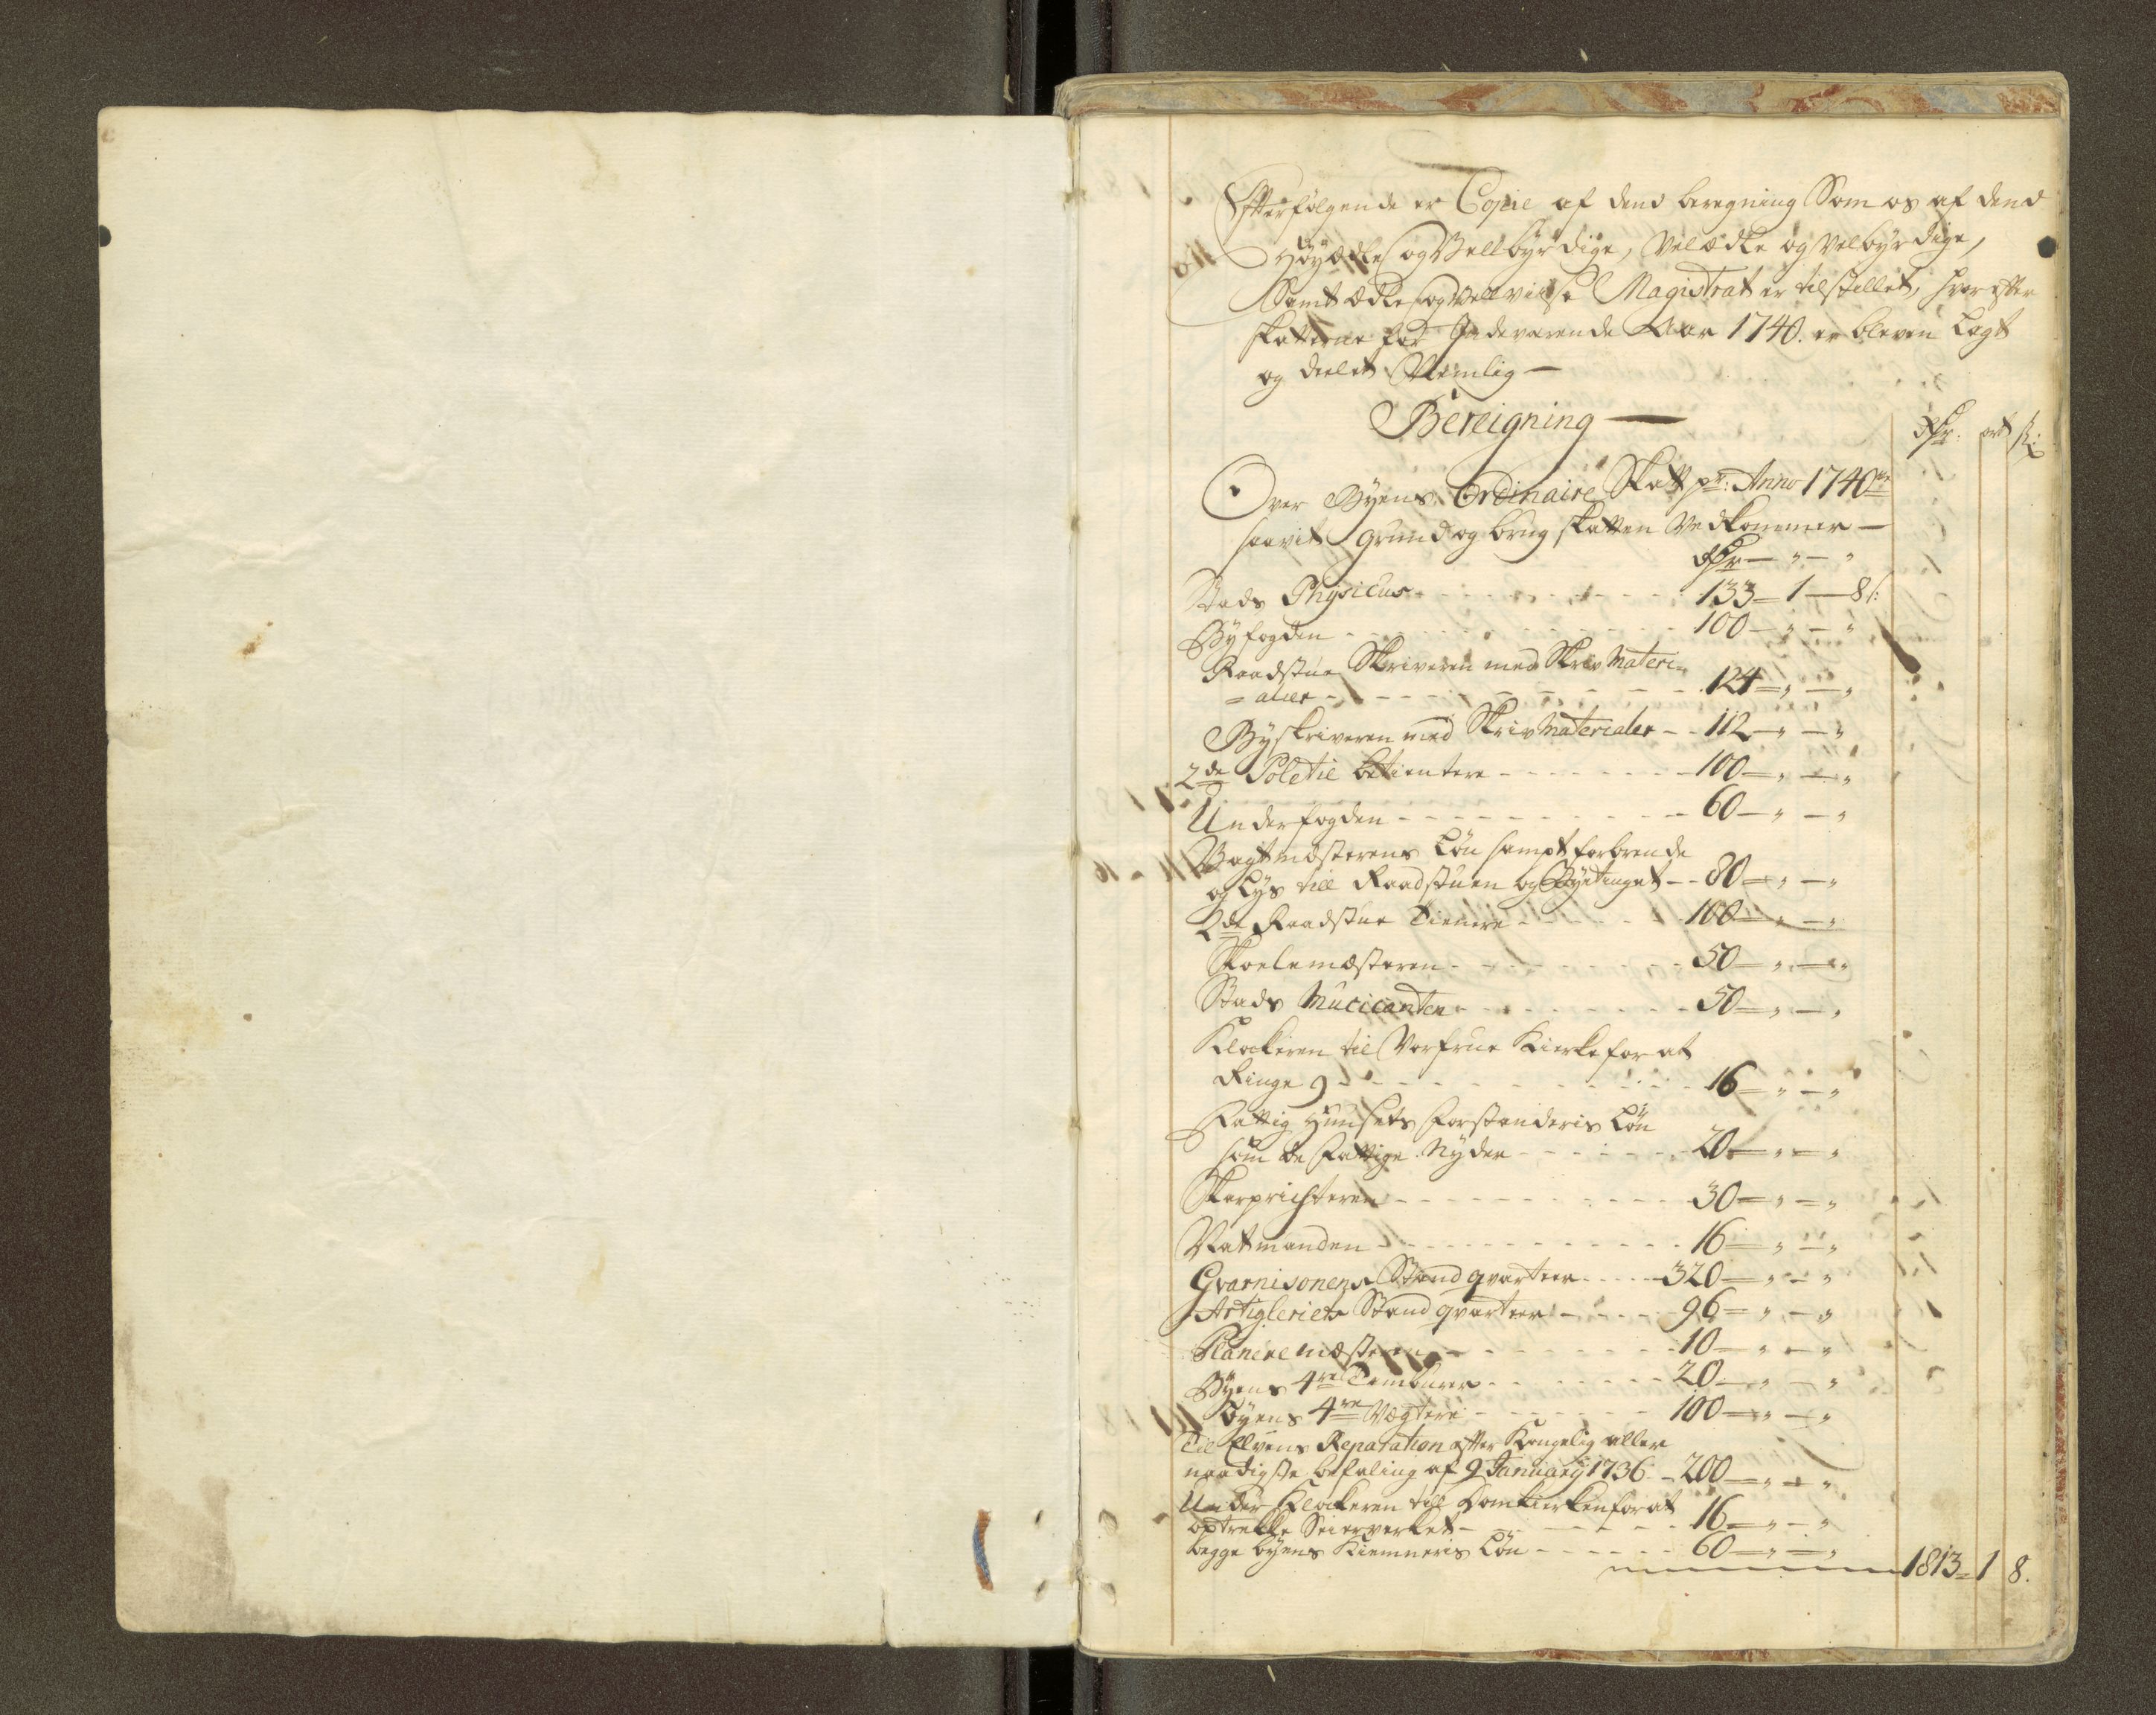 Efterfølgende er Copie af dend beregning Som os af dend
Høyædle og Vellbyrdige, Velædle og Velbyrdige,
Samt Ædle og Vellviise Magistrat er tilstillet, hvor efter
skatterne for Indeværende Aar 1740. er bleven Lagt
og deelet Nemlig —
Bereigning —
Rdr. ort ſz:
Over Byens Ordinaire Skatt pr: Anno 1740
saavit grund og brug skatten Vedkommer —
Rdr — " — "
Stads Physicus - - - 133 — 1 — 8 s:
Byfogden - - - 100 — " — "
Raadstue Skriveren med Skriv Materi=
= aler - - - 124 — " — "
Byskriveren med Skriv Materialer - - 112 — " — "
2de Poletie betientere - - - 100 — " — "
Underfogden - - - 60 — " — "
Vagtmesterens Løn sampt forbrende
og Lys till Raadstuen og Byetinget - - 80 — " — "
2de Raadstue Tienere - - - 100 — " — "
Skoelemesteren - - - 50 — " — "
Stads Mucicanten - - - 50 — " — "
Klockeren til Vorfrue Kierke for at
Ringe 9 - - - 16 — " — "
Fattig Huusets Forstanderis Løn
som de Fattige Nyder - - - 20 — " — "
Skarprichteren - - - 30 — " — "
Natmanden - - - 16 — " — "
Gvarnisonens Stand qvarteer - - - 320 — " — "
Artigleriets Stand qvarteer - - - 96 — " — "
Planeremesteren - - - 10 — " — "
Byens 4re Tamburer - - - 20 — " — "
Byens 4re Vægtere - - - 100 — " — "
Til Elvens Reparation efter Kongelig aller
naadigste befaling af 9 January 1736 - 200 — " — "
Under Klockeren till Domkierken for at
optrekke Seierverket - - - 16 — " — "
begge byens Kiemneris Løn - - - 60 — " — "
1813 — 1 8.